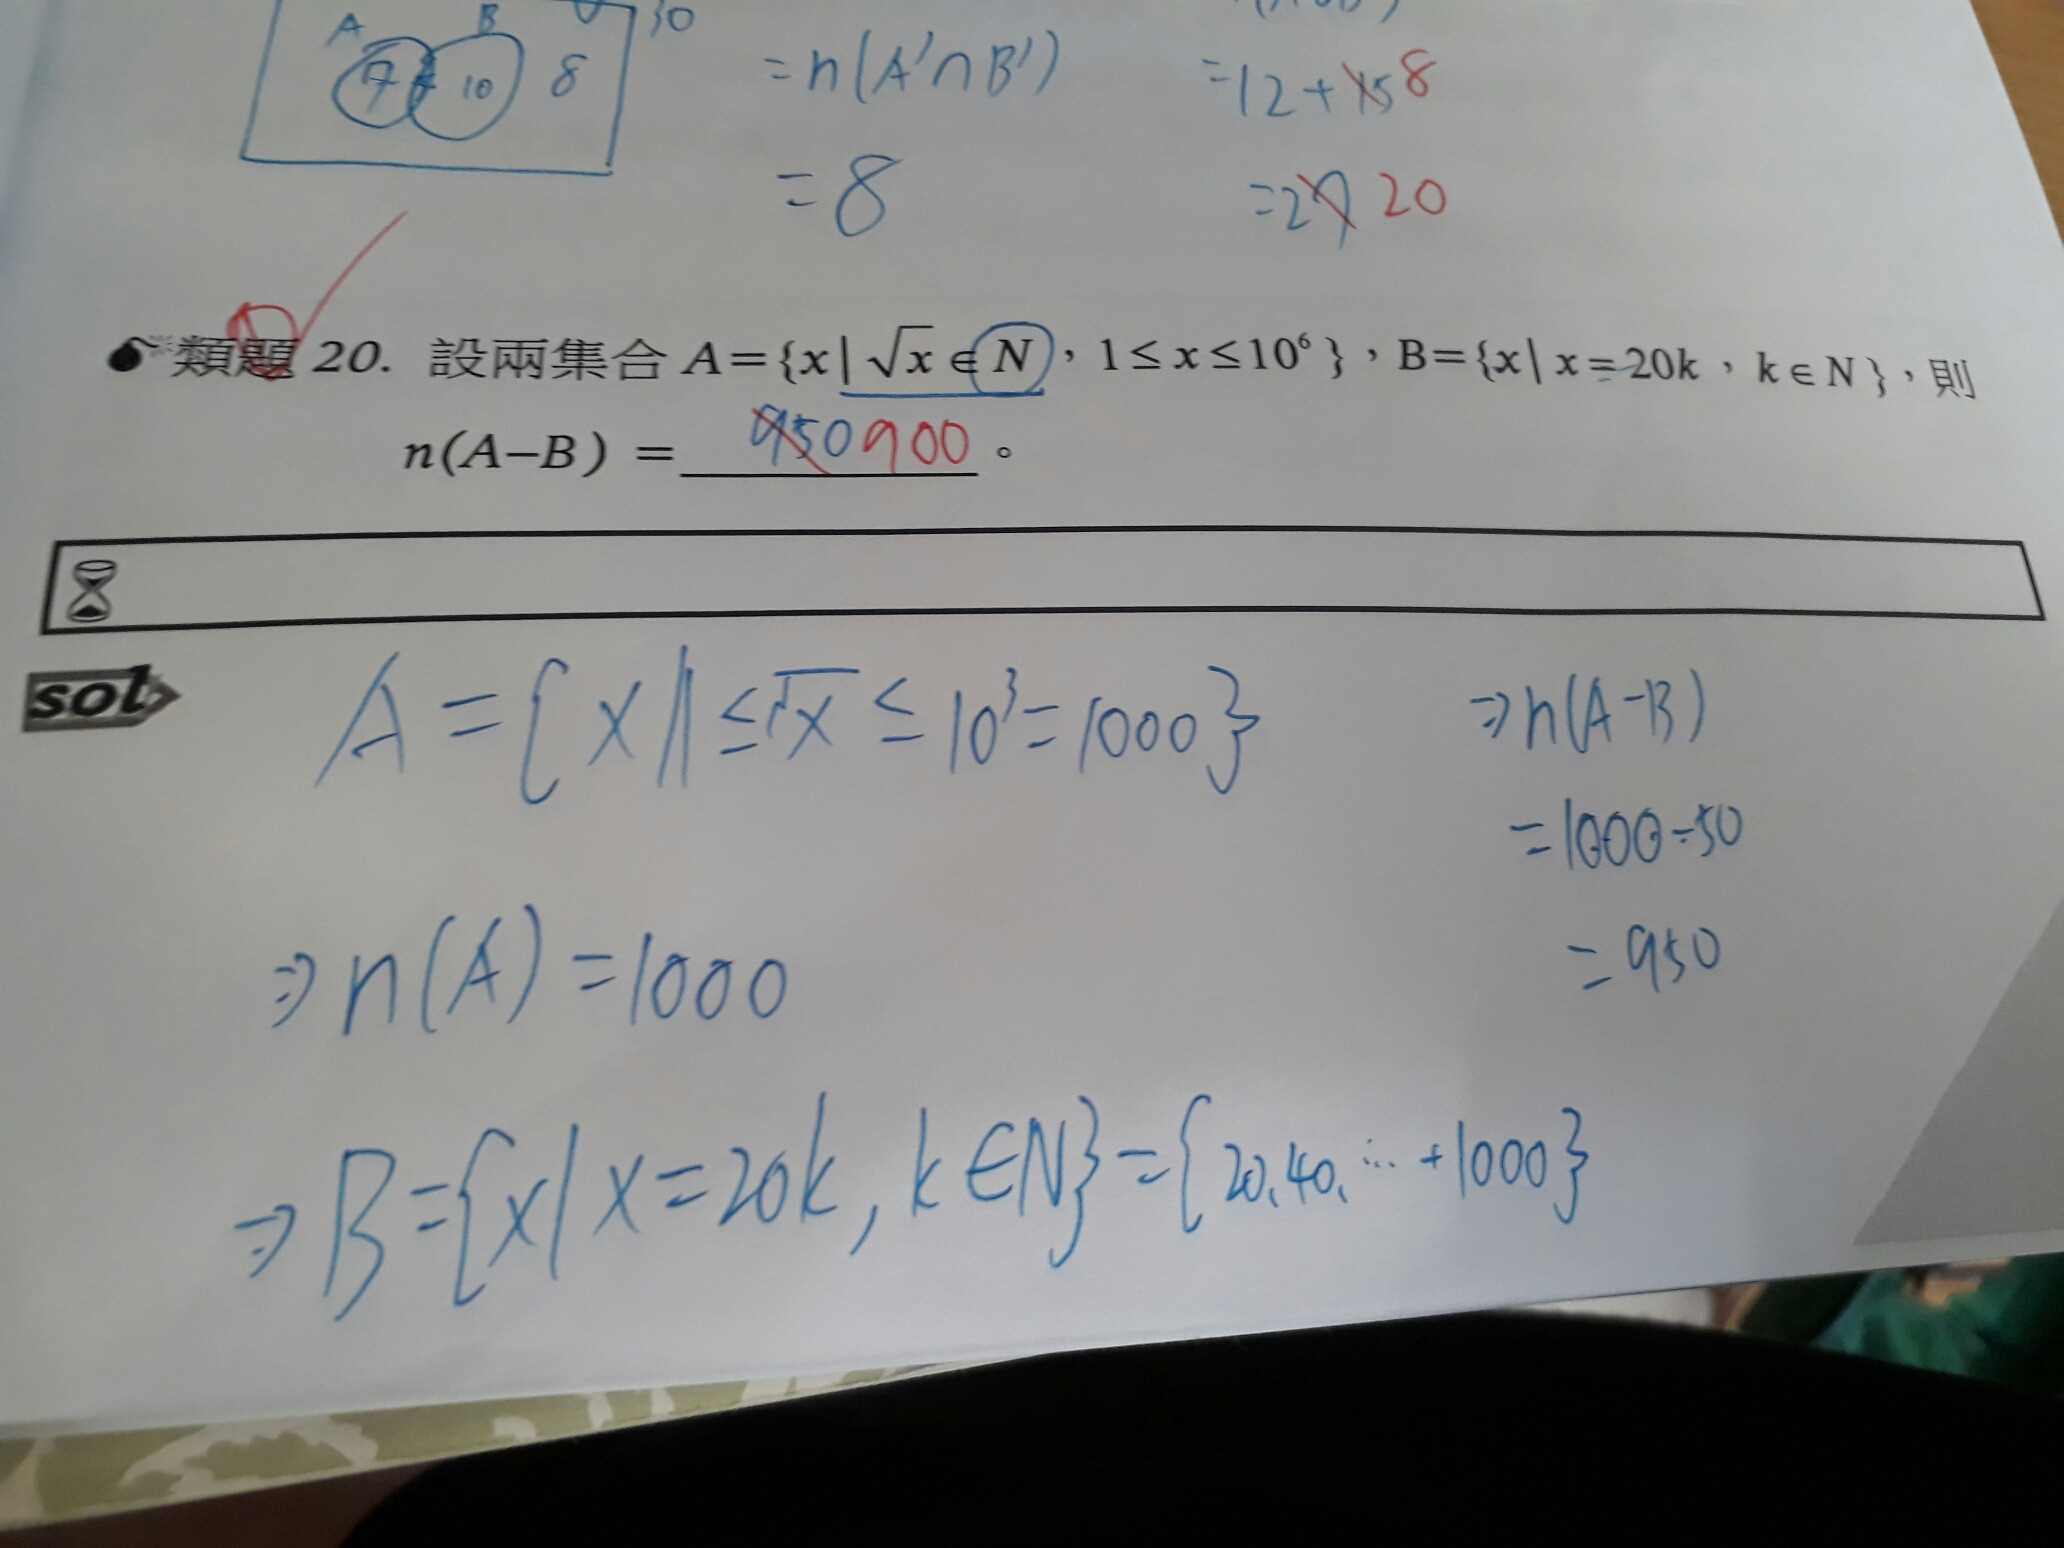 A B U 30
7 10 8
=n(A'∩B')
=8
=12+158
=27 20
類題 20. 設兩集合 A={x|√x∈N,1≤x≤10⁶},B={x|x=20k,k∈N},則
n(A−B)= 950 900 。
sol
A={x|1≤√x≤10³=1000}
⇒n(A)=1000
⇒B={x|x=20k,k∈N}={20,40,…+1000}
⇒n(A-B)
=1000-50
=950